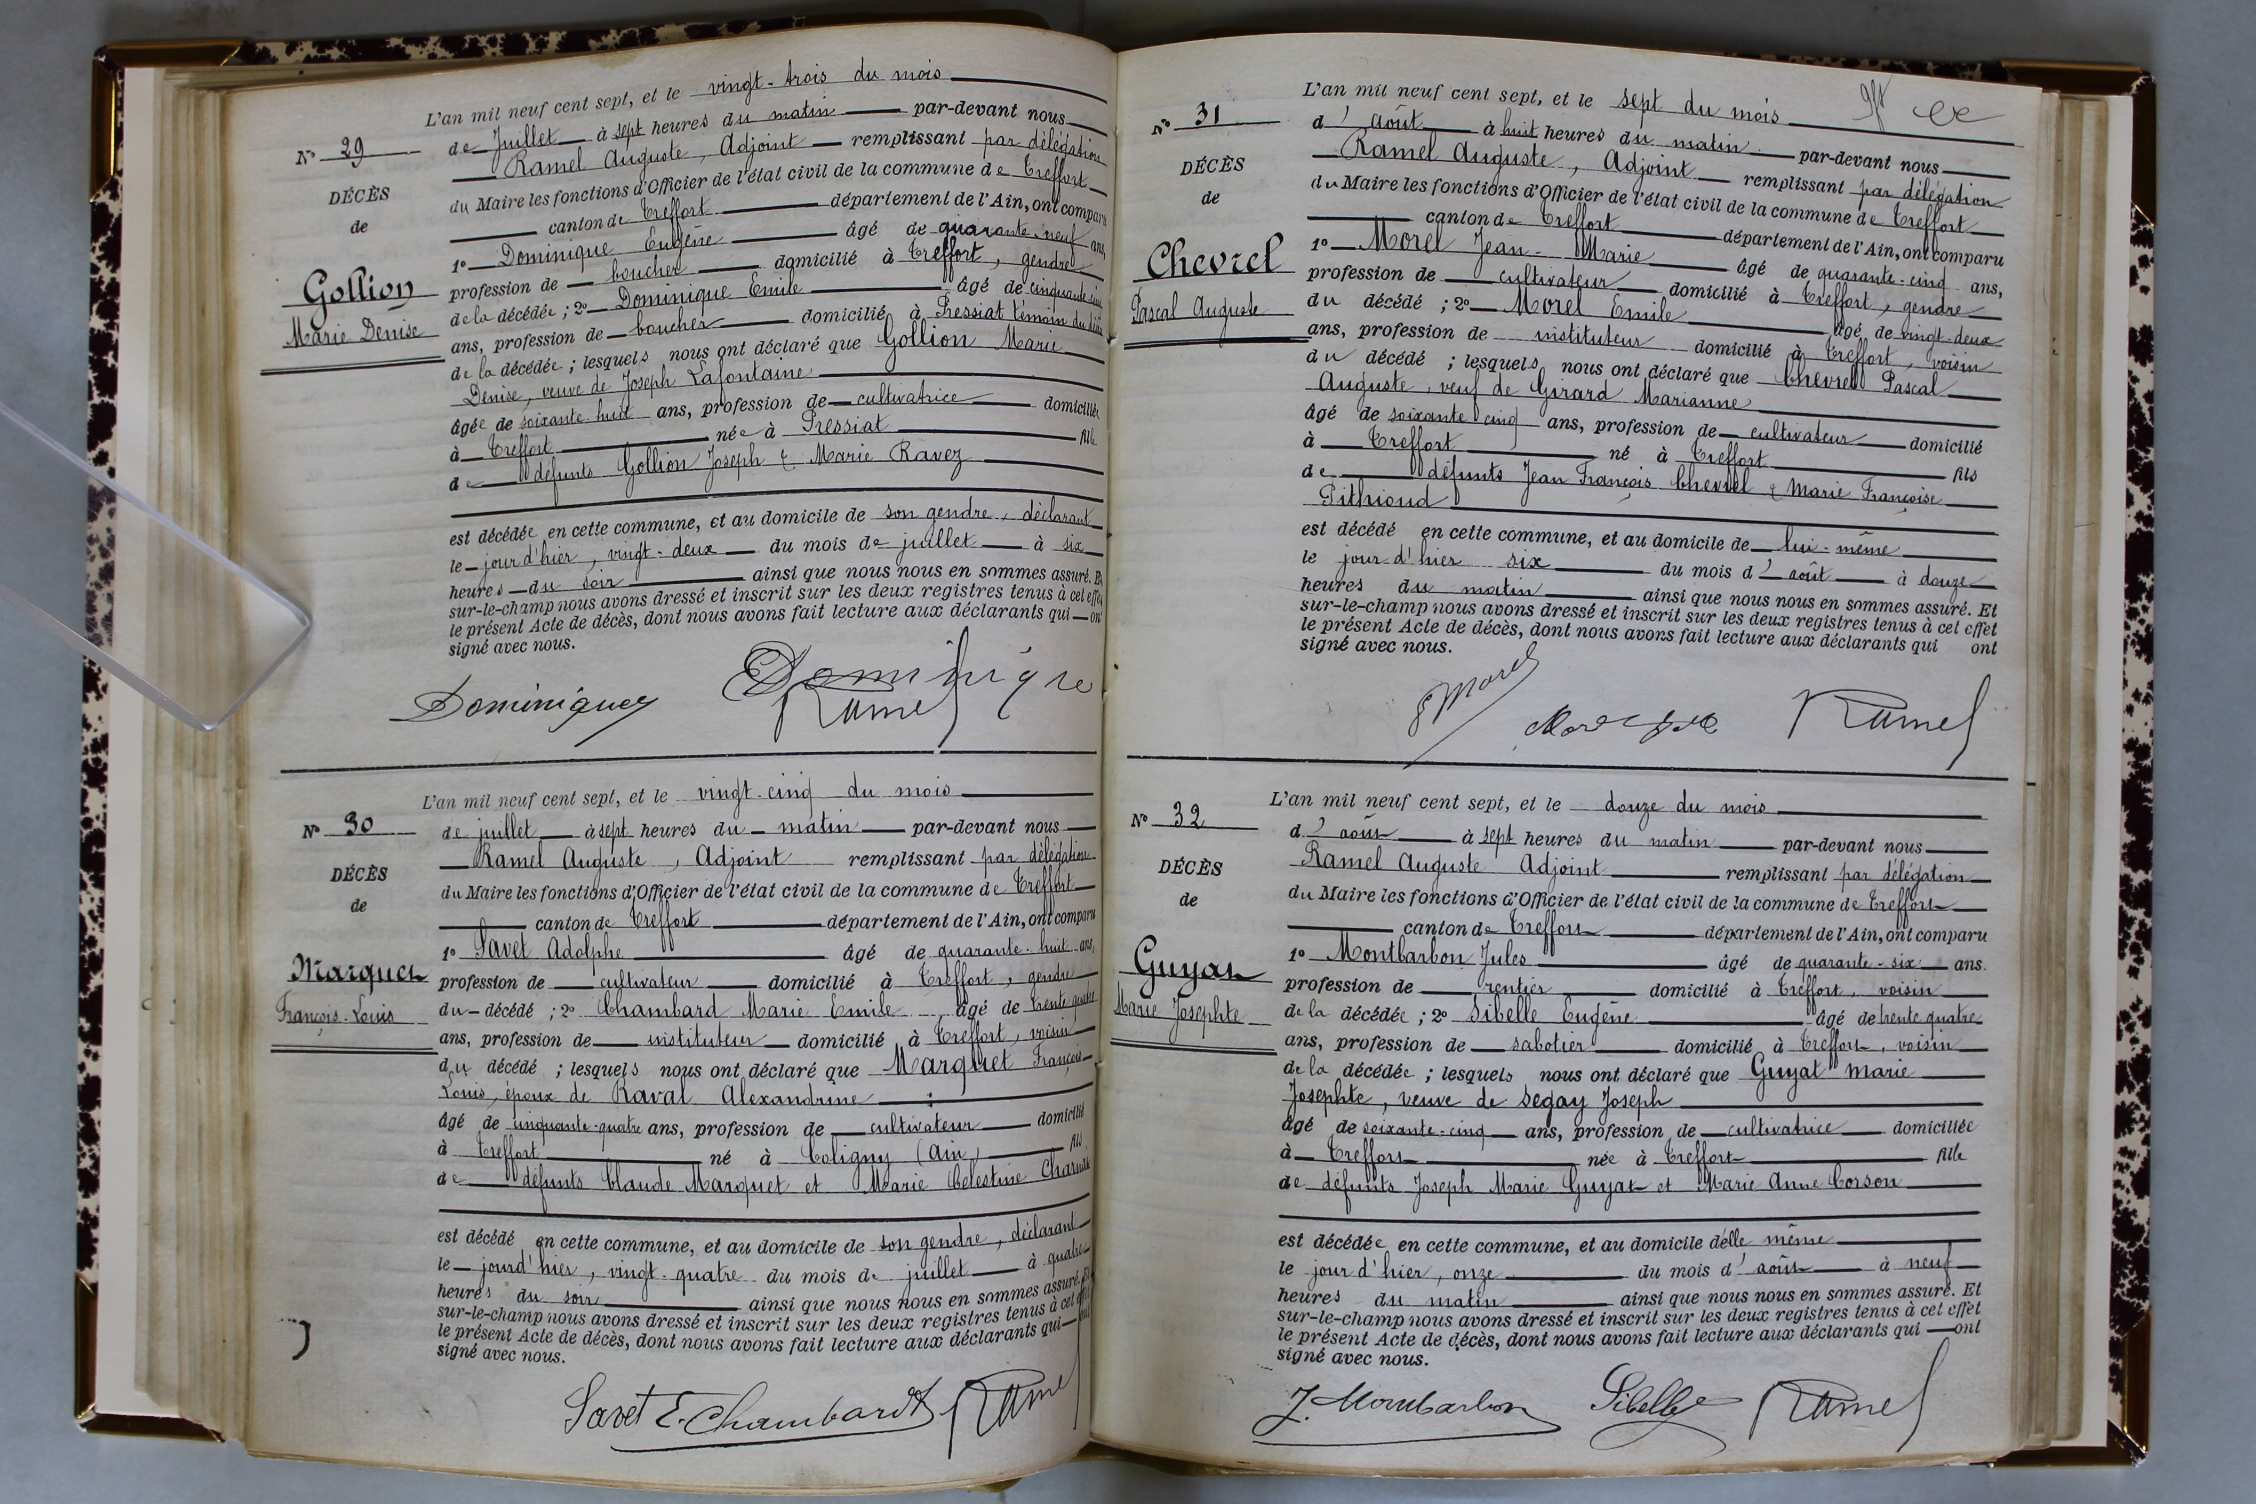 L'an mil neuf cent sept, et le vingt-trois du mois
de Juillet à sept heures du matin par-devant nous
Ramel Auguste, Adjoint remplissant par délégation
du Maire les fonctions d'Officier de l'état civil de la commune de Treffort
canton de Treffort département de l'Ain, ont comparu
1º Dominique Eugène âgé de quarante-neuf ans,
profession de boucher domicilié à Treffort, gendre
de la décédée ; 2º Dominique Emile âgé de cinquante
ans, profession de boucher domicilié à Pressiat témoin
de la décédée ; lesquels nous ont déclaré que Gollion Marie
Denise, veuve de Joseph Lafontaine
âgée de soixante huit ans, profession de cultivatrice domiciliée
à Treffort née à Pressiat fille
de défunts Gollion Joseph & Marie Ravez
est décédée en cette commune, et au domicile de son gendre, déclarant
le jour d'hier, vingt-deux du mois de juillet à six
heures du soir ainsi que nous nous en sommes assuré. Et
sur-le-champ nous avons dressé et inscrit sur les deux registres tenus à cet effet
le présent Acte de décès, dont nous avons fait lecture aux déclarants qui ont
signé avec nous.
Nº 29
DÉCÈS
de
Gollion
Marie Denise
Dominique Dominique
Ramel
L'an mil neuf cent sept, et le vingt-cinq du mois
de juillet à sept heures du matin par-devant nous
Ramel Auguste, Adjoint remplissant par délégation
du Maire les fonctions d'Officier de l'état civil de la commune de Treffort
canton de Treffort département de l'Ain, ont comparu
1º Savet Adolphe âgé de quarante-huit ans,
profession de cultivateur domicilié à Treffort, gendre
du décédé ; 2º Chambard Marie Emile, âgé de trente quatre
ans, profession de instituteur domicilié à Treffort, voisin
du décédé ; lesquels nous ont déclaré que Marquet François
Louis, époux de Raval Alexandrine
âgé de cinquante-quatre ans, profession de cultivateur domicilié
à Treffort né à Coligny (Ain) fils
de défunts Claude Marquet et Marie Célestine
est décédé en cette commune, et au domicile de son gendre, déclarant
le jour d'hier, vingt-quatre du mois de juillet à quatre
heures du soir ainsi que nous nous en sommes assuré. Et
sur-le-champ nous avons dressé et inscrit sur les deux registres tenus à cet effet
le présent Acte de décès, dont nous avons fait lecture aux déclarants qui ont
signé avec nous.
Nº 30
DÉCÈS
de
Marquet
François-Louis
Savet E. Chambard Ramel
L'an mil neuf cent sept, et le sept du mois
d'août à huit heures du matin par-devant nous
Ramel Auguste, Adjoint remplissant par délégation
du Maire les fonctions d'Officier de l'état civil de la commune de Treffort
canton de Treffort département de l'Ain, ont comparu
1º Morel Jean-Marie âgé de quarante-cinq ans,
profession de cultivateur domicilié à Treffort, gendre
du décédé ; 2º Morel Emile âgé de vingt-deux
ans, profession de instituteur domicilié à Treffort, voisin
du décédé ; lesquels nous ont déclaré que Chevrel Pascal
Auguste, veuf de Girard Marianne
âgé de soixante cinq ans, profession de cultivateur domicilié
à Treffort né à Treffort fils
de défunts Jean François Chevrel & Marie Françoise
Pithioud
est décédé en cette commune, et au domicile de lui-même
le jour d'hier six du mois d'août à douze
heures du matin ainsi que nous nous en sommes assuré. Et
sur-le-champ nous avons dressé et inscrit sur les deux registres tenus à cet effet
le présent Acte de décès, dont nous avons fait lecture aux déclarants qui ont
signé avec nous.
Nº 31
DÉCÈS
de
Chevrel
Pascal Auguste
E Morel Morel Ramel
L'an mil neuf cent sept, et le douze du mois
d'août à sept heures du matin par-devant nous
Ramel Auguste Adjoint remplissant par délégation
du Maire les fonctions d'Officier de l'état civil de la commune de Treffort
canton de Treffort département de l'Ain, ont comparu
1º Montbarbon Jules âgé de quarante-six ans.
profession de rentier domicilié à Treffort, voisin
de la décédée ; 2º Sibelle Eugène âgé de trente quatre
ans, profession de sabotier domicilié à Treffort, voisin
de la décédée ; lesquels nous ont déclaré que Guyat Marie
Josephte, veuve de Segay Joseph
âgé de soixante-cinq ans, profession de cultivatrice domiciliée
à Treffort née à Treffort fille
de défunts Joseph Marie Guyat et Marie Anne Corson
est décédée en cette commune, et au domicile d'elle même
le jour d'hier, onze du mois d'août à neuf
heures du matin ainsi que nous nous en sommes assuré. Et
sur-le-champ nous avons dressé et inscrit sur les deux registres tenus à cet effet
le présent Acte de décès, dont nous avons fait lecture aux déclarants qui ont
signé avec nous.
Nº 32
DÉCÈS
de
Guyat
Marie Josephte
J. Montbarbon Sibelle Ramel